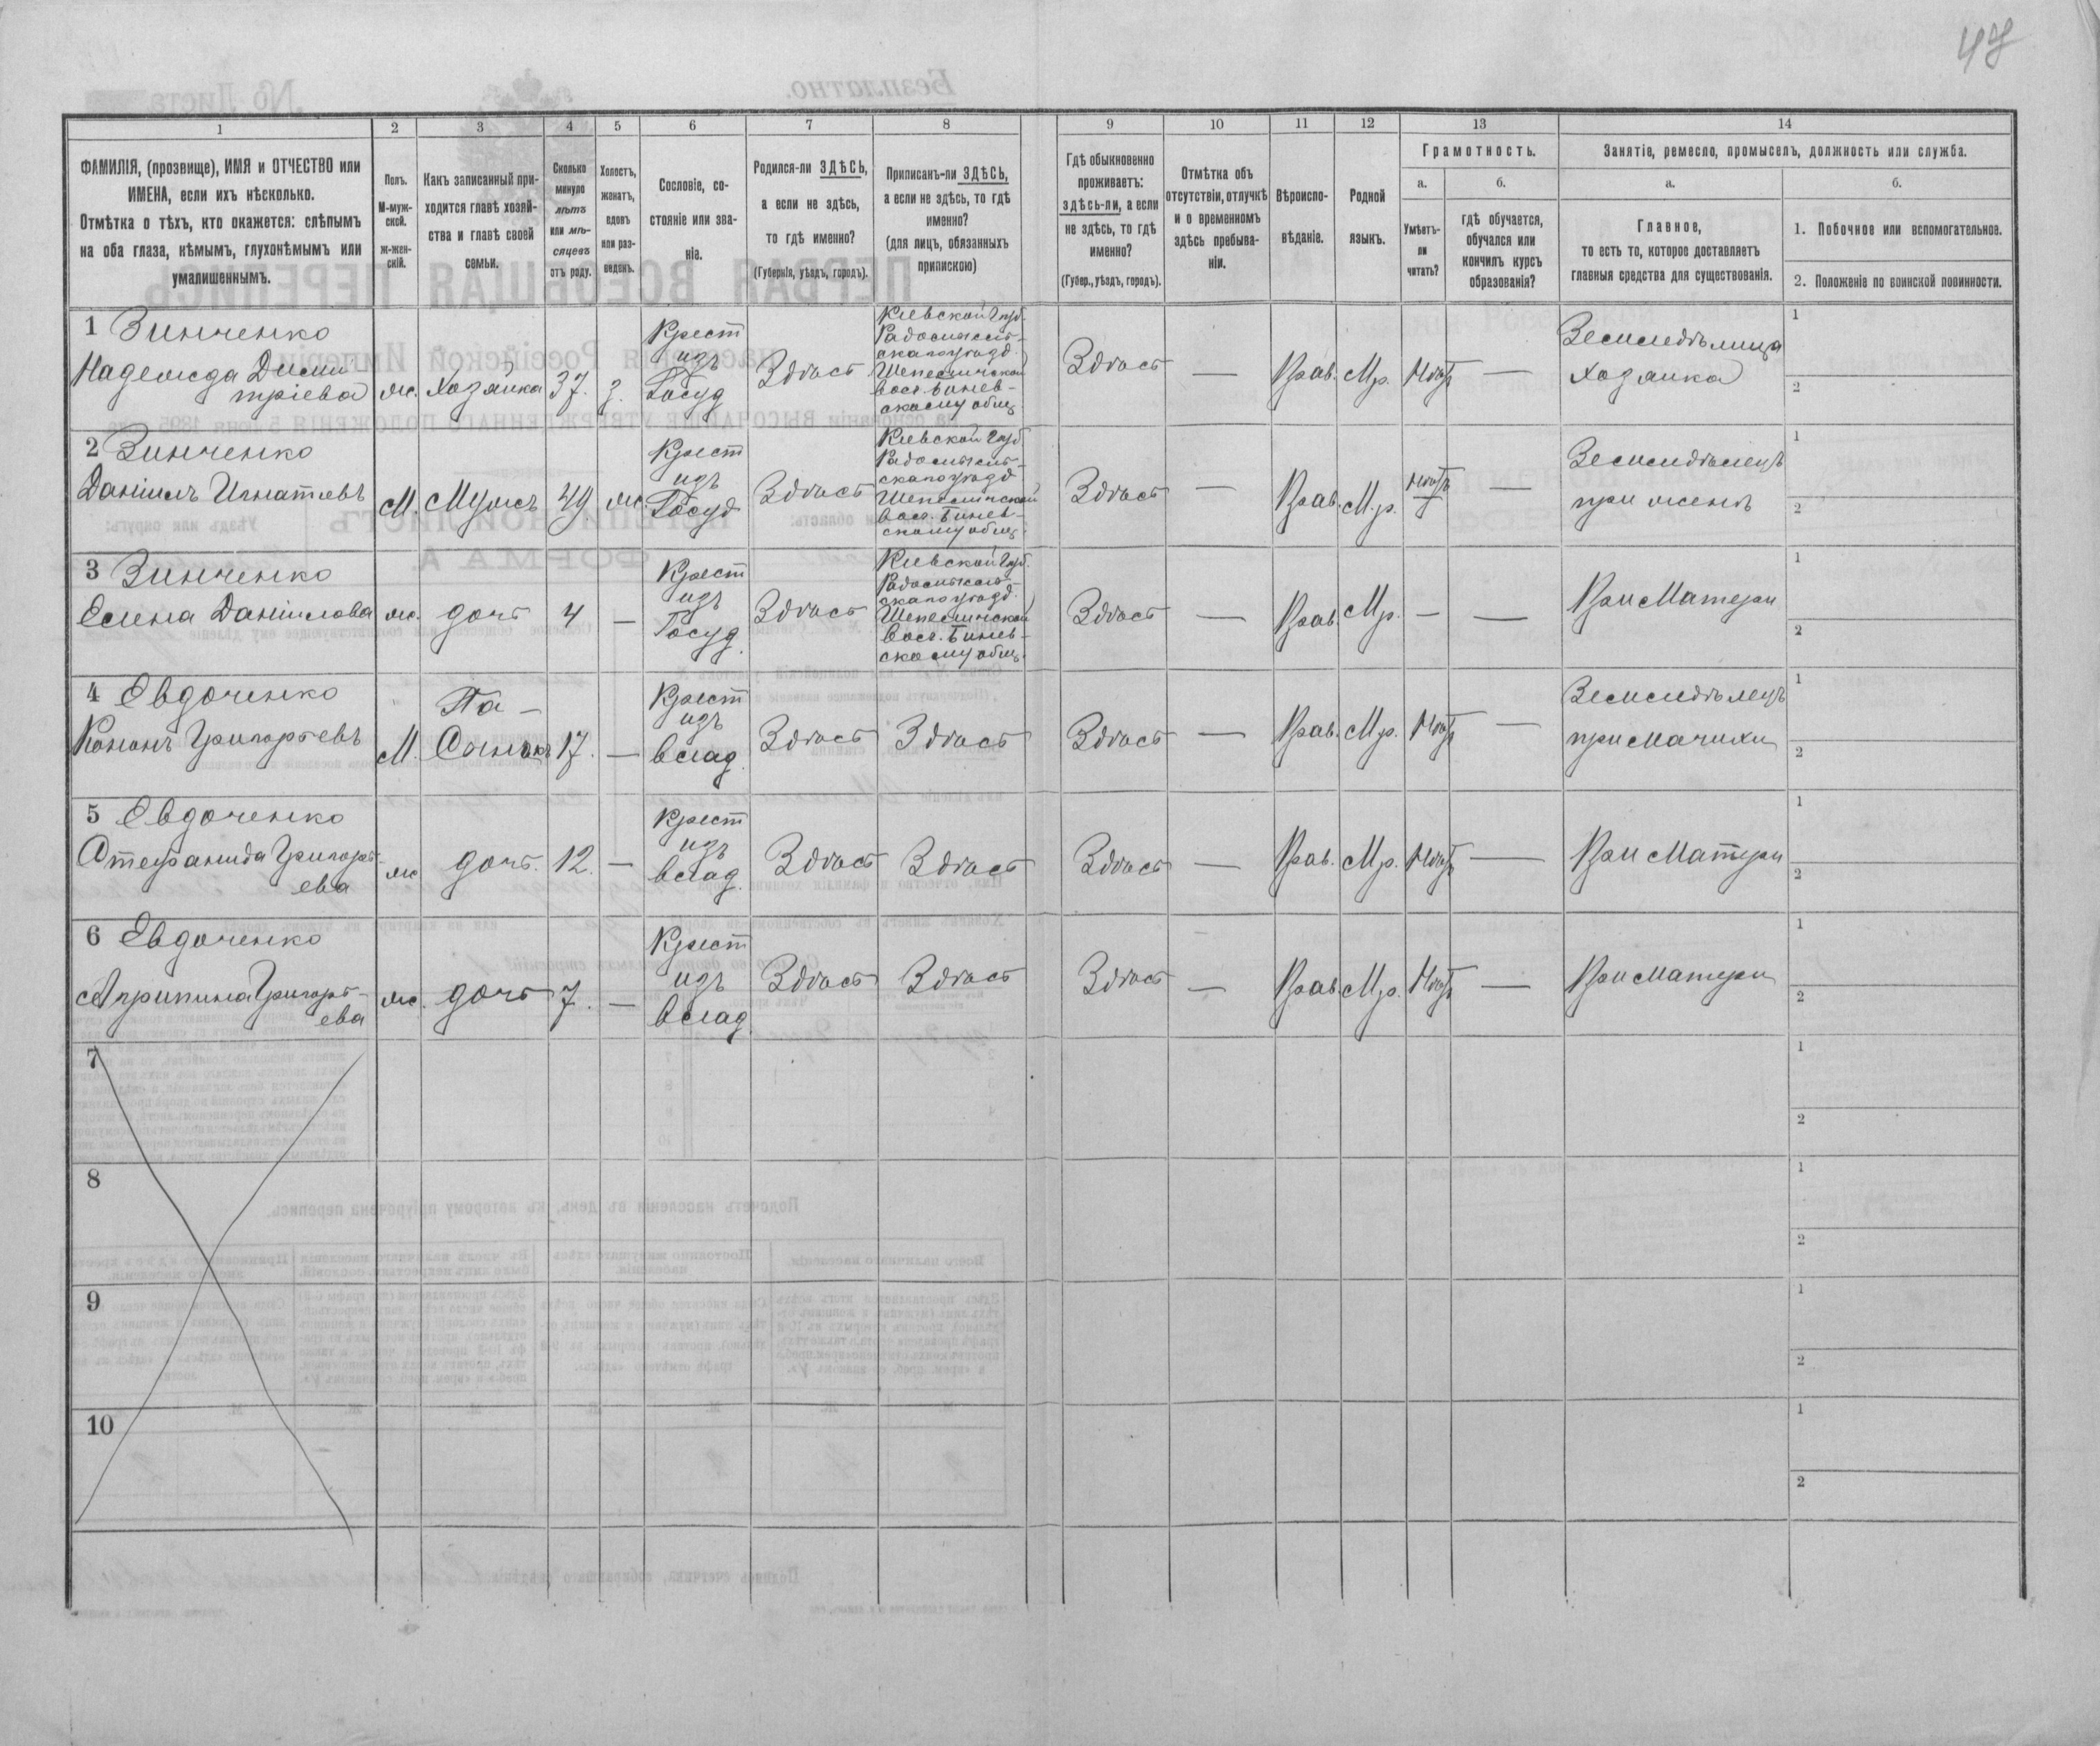 47
1 2 3 4 5 6 7 8 9 10 11 12 13 14
ФАМИЛІЯ, (прозвище), ИМЯ и ОТЧЕСТВО или
ИМЕНА, если ихъ нѣсколько.
Отмѣтка о тѣхъ, кто окажется: слѣпымъ
на оба глаза, нѣмымъ, глухонѣмымъ или
умалишеннымъ.
Полъ.
М-муж-
ской.
Ж-жен-
скій.
Какъ записанный при-
ходится главѣ хозяй-
ства и главѣ своей
семьи.
Сколько
минуло
лѣтъ
или мѣ-
сяцевъ
отъ роду.
Холостъ,
женатъ,
вдовъ
или раз-
веденъ.
Сословіе, со-
стояніе или зва-
ніе.
Родился-ли ЗДѢСЬ,
а если не здѣсь,
то гдѣ именно?
(Губернія, уѣздъ, городъ).
Приписанъ-ли ЗДѢСЬ,
а если не здѣсь, то гдѣ
именно?
(для лицъ, обязанныхъ
припискою)
Гдѣ обыкновенно
проживаетъ:
здѣсь-ли, а если
не здѣсь, то гдѣ
именно?
(Губер., уѣздъ, городъ).
Отмѣтка объ
отсутствіи, отлучкѣ
и о временномъ
здѣсь пребыва-
ніи.
Вѣроиспо-
вѣданіе.
Родной
языкъ.
Грамотность.
а.
Умѣетъ-
ли
читать?
б.
гдѣ обучается,
обучался или
кончилъ курсъ
образованія?
Занятіе, ремесло, промыселъ, должность или служба.
а.
Главное,
то есть то, которое доставляетъ
главныя средства для существованія.
б.
1. Побочное или вспомогательное.
2. Положеніе по воинской повинности.
1 Зинченко
Надежда Дими
тріева
ж.
Хозяйка
37.
з.
Крест
изъ
Госуд
Здѣсь
Кіевской Губ.
Радомысль-
скаго уѣзд.
Шепеличской
вол.
скому общ.
Здѣсь
—
Прав.
Мр.
Нѣтъ
—
Земледѣлица
Хозяйка
1
2
2 Зинченко
Даніилъ Игнатіевъ
М.
Мужъ
49
ж.
Крест
изъ
Госуд
Здѣсь
Кіевской Губ
Радомысль-
скаго уѣзд
Шепеличской
вол.
скому общ.
Здѣсь
—
Прав.
М.р.
Нѣтъ
—
Земледѣлецъ
при женѣ
1
2
3 Зинченко
Елена Даніилова
ж.
дочь
4
—
Крест
изъ
Госуд.
Здѣсь
Кіевской Губ.
Радомысль-
скаго уѣзд.
Шепеличской
вол.
скому общ.
Здѣсь
—
Прав.
Мр.
—
—
При Матери
1
2
4 Евдоченко
Кононъ Григорьевъ
М.
Па-
Сынокъ
17.
—
Крест
изъ
влад.
Здѣсь
Здѣсь
Здѣсь
—
Прав.
Мр.
Нѣтъ
—
Земледѣлецъ
при Мачихи
1
2
5 Евдоченко
Стефанида Григорь-
ева
ж
дочь.
12.
—
Крест
изъ
влад.
Здѣсь
Здѣсь
Здѣсь
—
Прав.
Мр.
Нѣтъ
—
При Матери
1
2
6 Евдоченко
Агрипина Григорь-
ева
ж.
дочь
7.
—
Крест
изъ
влад.
Здѣсь
Здѣсь
Здѣсь
—
Прав.
Мр.
Нѣтъ
—
При Матери
1
2
7
1
2
8
1
2
9
1
2
10
1
2